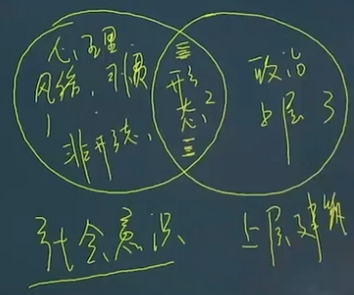 心理
风俗、习惯
1
非形态、
形
态、2
政治
上层 3
社会意识
上层建筑